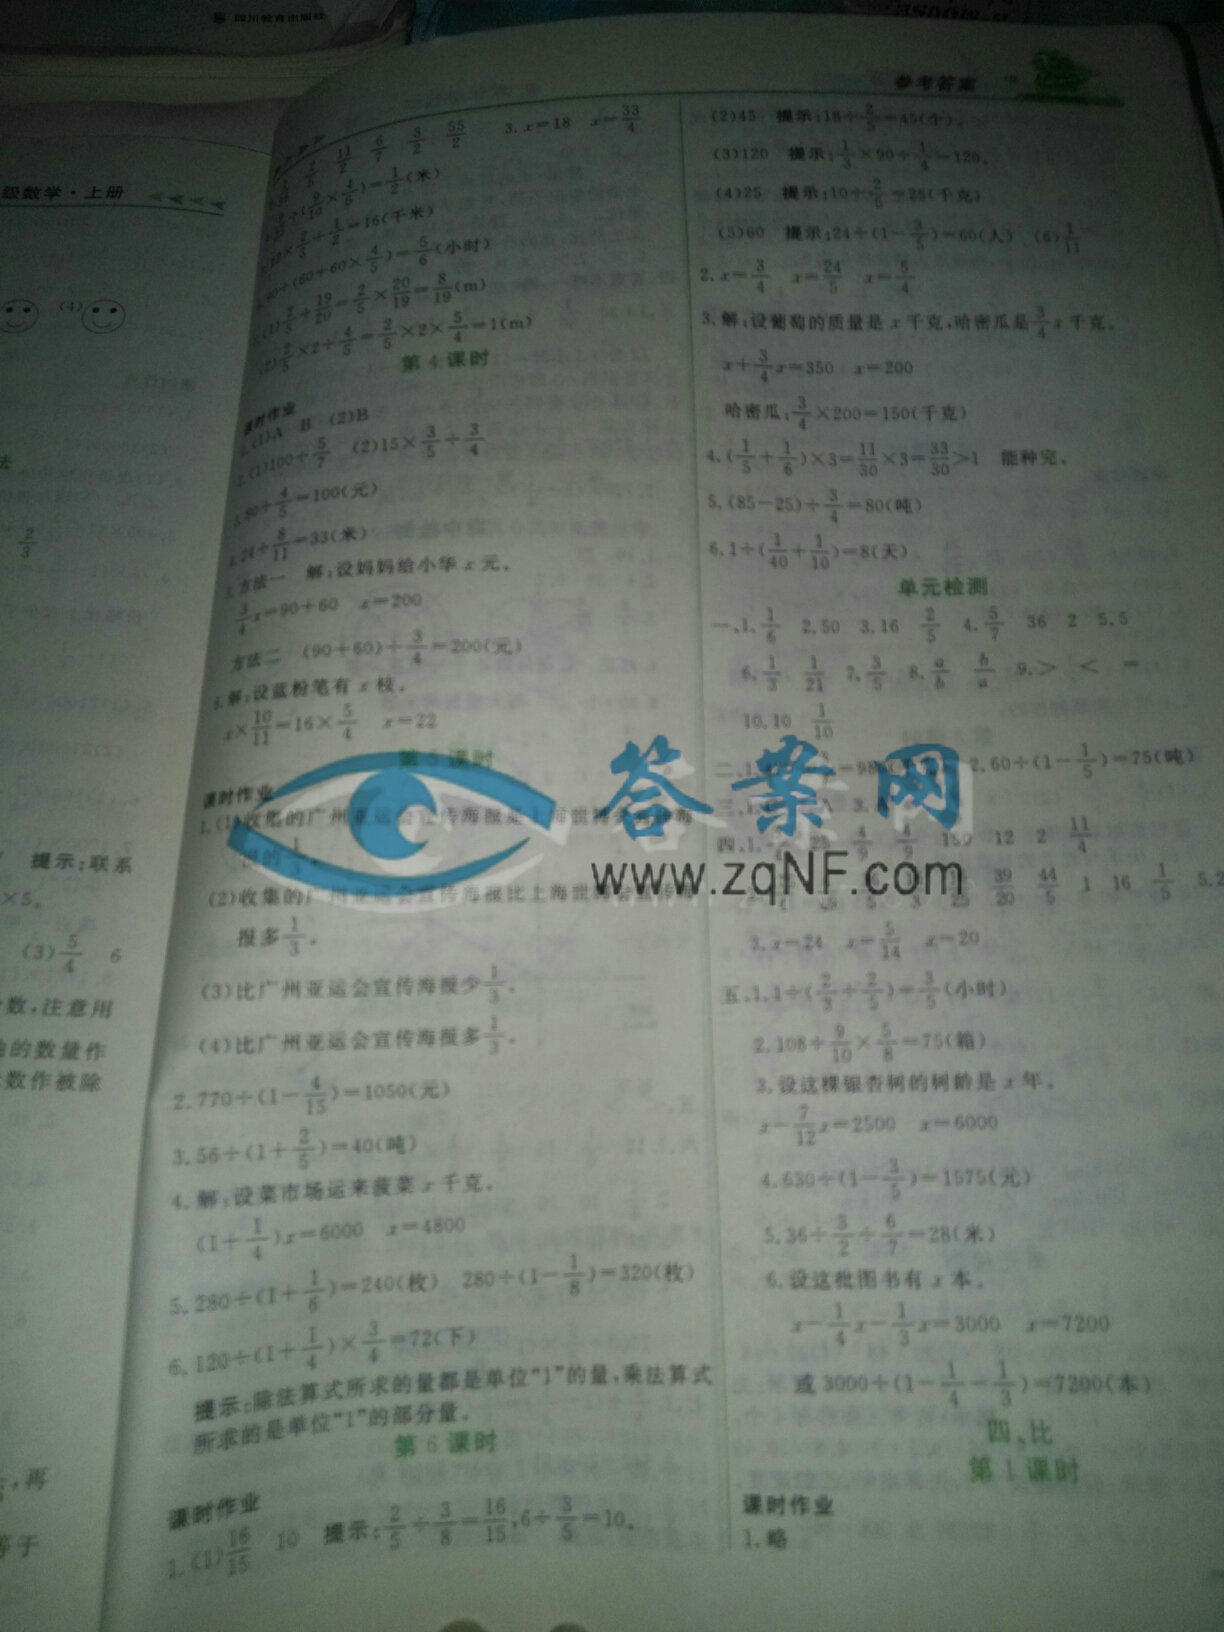 四川教育出版社
级数学·上册
(4)
2/3
提示:联系
×5。
(3)5/4 6
数,注意用
的数量作
数作被除
,再
等于
参考答案
11/2 6/7 3/2 55/2 3.x=18 x=33/4
÷(9/10×4/5)=1/2(米)
÷1/2=16(千米)
90÷(60+60×4/5)=5/6(小时)
(1)2/5÷19/20=2/5×20/19=8/19(m)
(2)2/5×2÷4/5=2/5×2×5/4=1(m)
第4课时
课时作业
1.(1)A B (2)B
2.(1)100÷5/7 (2)15×3/5÷3/4
3.80÷4/5=100(元)
4.24÷8/11=33(米)
5.方法一 解:设妈妈给小华x元。
3/4x=90+60 x=200
方法二 (90+60)÷3/4=200(元)
6.解:设蓝粉笔有x枝。
x×10/11=16×5/4 x=22
第5课时
课时作业
1.(1)收集的广州亚运会宣传海报是上海世博会宣传海
报的1/3。
(2)收集的广州亚运会宣传海报比上海世博会宣传海
报多1/3。
(3)比广州亚运会宣传海报少1/3。
(4)比广州亚运会宣传海报多1/3。
2.770÷(1-4/15)=1050(元)
3.56÷(1+2/5)=40(吨)
4.解:设菜市场运来菠菜x千克。
(1+1/4)x=6000 x=4800
5.280÷(1+1/6)=240(枚) 280÷(1-1/8)=320(枚)
6.120÷(1+1/4)×3/4=72(下)
提示:除法算式所求的量都是单位“1”的量,乘法算式
所求的是单位“1”的部分量。
第6课时
课时作业
1.(1)16/15 10 提示:2/5÷3/8=16/15,6÷3/5=10。
(2)45 提示:18÷2/5=45(个)。
(3)120 提示:1/3×90÷1/4=120。
(4)25 提示:10÷2/5=25(千克)
(5)60 提示:24÷(1-3/5)=60(人) (6)1/11
2.x=3/4 x=24/5 x=5/4
3.解:设葡萄的质量是x千克,哈密瓜是3/4x千克。
x+3/4x=350 x=200
哈密瓜:3/4×200=150(千克)
4.(1/5+1/6)×3=11/30×3=33/30>1 能种完。
5.(85-25)÷3/4=80(吨)
6.1÷(1/40+1/10)=8(天)
单元检测
一、1.1/6 2.50 3.16 2/5 4.5/7 36 2 5.5
6.1/3 1/21 7.3/5 8.a/b b/a 9.> < =
10.10 1/10
二、1. 2.60÷(1-1/5)=75(吨)
三、1. A 3.
四、1. 25 4/9 4/9 12 2 11/4
39/20 44/5 1 16 1/5
3.x=24 x=5/14 x=20
五、1.1÷(2/3÷2/5)=3/5(小时)
2.108÷9/10×5/8=75(箱)
3.设这棵银杏树的树龄是x年。
x-7/12x=2500 x=6000
4.630÷(1-3/5)=1575(元)
5.36÷3/2÷6/7=28(米)
6.设这批图书有x本。
x-1/4x-1/3x=3000 x=7200
或3000÷(1-1/4-1/3)=7200(本)
四、比
第1课时
课时作业
1.略
答案网
www.zqNF.com